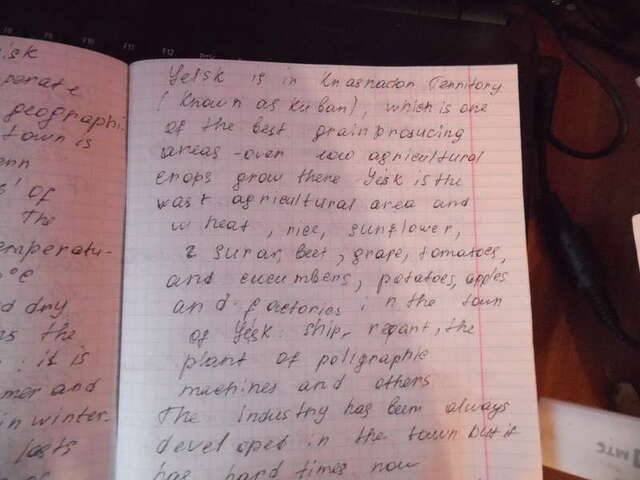 isk
perate
geographi.
town is
enn
s' of
The
emperatu-
°C
d dry
ns the
: it is
mer and
in winter.
loots
F9
F10
F11
F12
Yeisk is in Krasnadon Territory
(Known as Kuban), which is one
of the best grainproducing
areas-over 100 agricultural
crops grow there. Yeisk is the
vast agricultural area and
wheat, rice, sunflower,
sugar, beet, grape, tomatoes,
and cucumbers, potatoes, apples
and factories in the town
of Yeisk: ship, repant, the
plant of poligraphic
machines and others
The Industry has been always
developet in the town but it
has hard times now
МТС